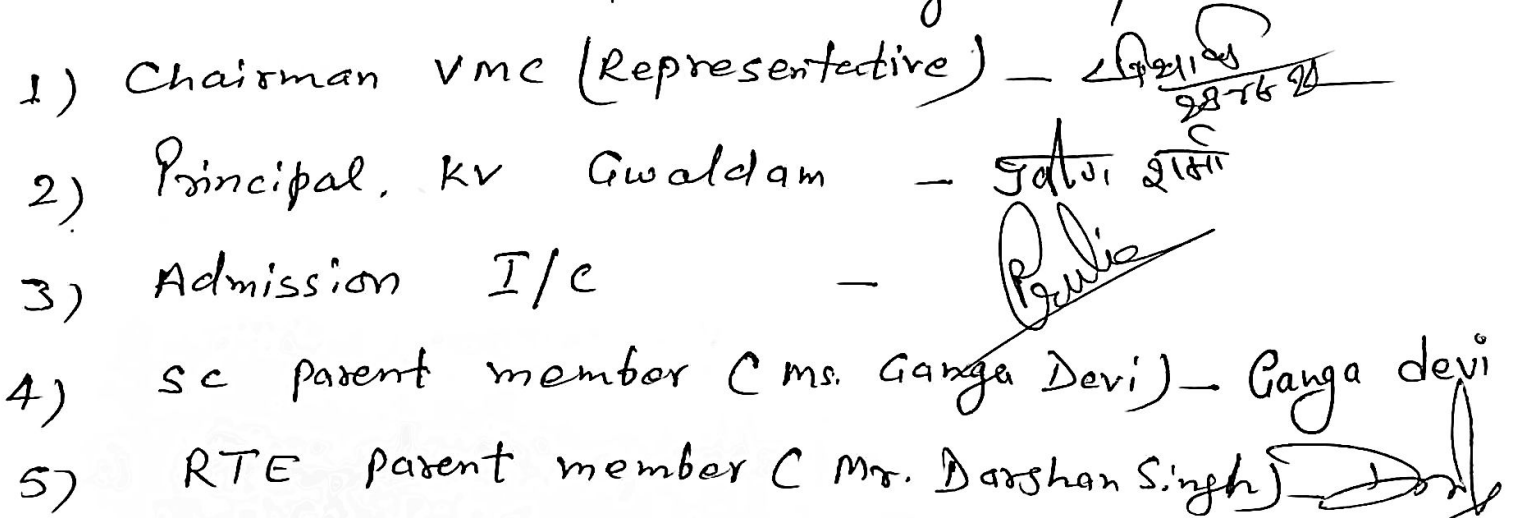 1) Chairman VMC (Representative) –
2) Principal, KV Gwaldam – शर्मा
3) Admission I/C –
4) SC parent member (Ms. Ganga Devi) – Ganga devi
5) RTE parent member (Mr. Darshan Singh) –